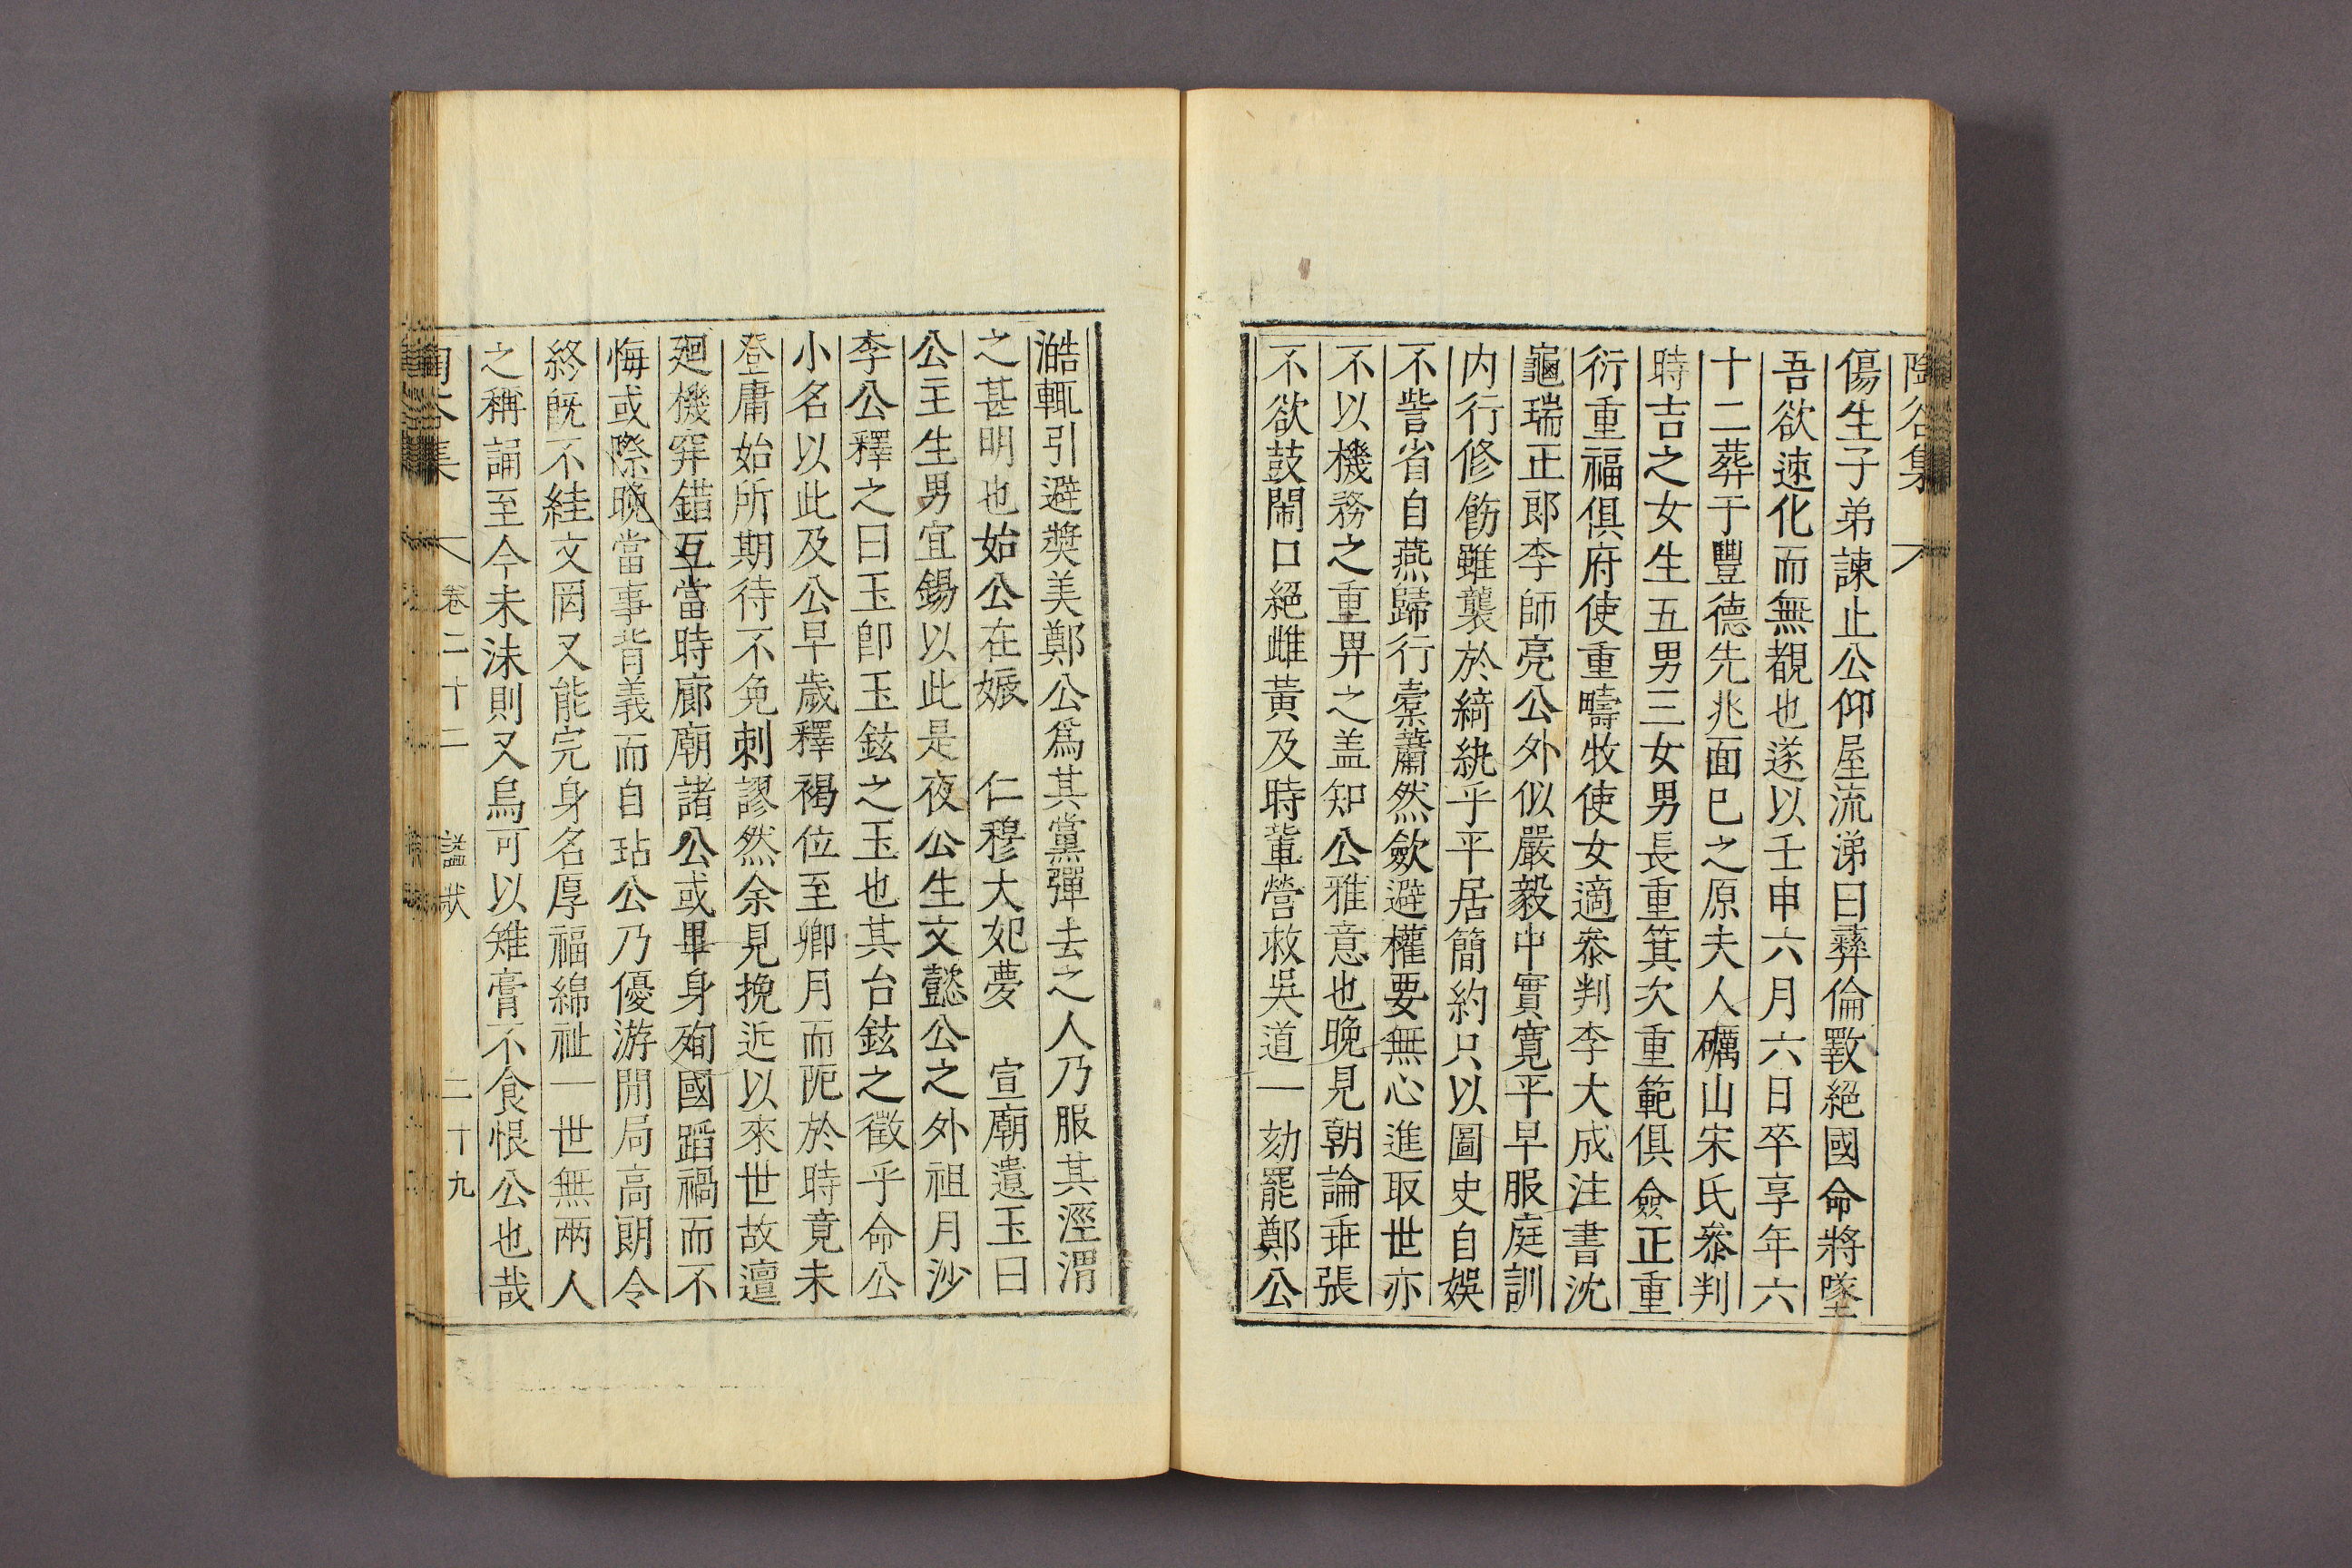 陶谷集
傷生子弟諫止公仰屋流涕曰彛倫斁絕國命將墜
吾欲速化而無覩也遂以壬申六月六日卒享年六
十二葬于豐德先兆面巳之原夫人礪山宋氏叅判
時吉之女生五男三女男長重箕次重範俱僉正重
衍重福俱府使重疇牧使女適叅判李大成注書沈
龜瑞正郎李師亮公外似嚴毅中實寬平早服庭訓
内行修飭雖襲於綺紈乎平居簡約只以圖史自娛
不訾省自燕歸行槖蕭然歛避權要無心進取世亦
不以機務之重畀之盖知公雅意也晚見朝論乖張
不欲鼓鬧口絕雌黃及時軰營救吳道一劾罷鄭公
澔輒引避奬美鄭公爲其黨彈去之人乃服其涇渭
之甚明也始公在娠 仁穆大妃夢 宣廟遺玉曰
公主生男宜錫以此是夜公生文懿公之外祖月沙
李公釋之曰玉卽玉鉉之玉也其台鉉之徵乎命公
小名以此及公早歲釋褐位至卿月而阨於時竟未
登庸始所期待不免刺謬然余見挽近以來世故邅
廻機穽錯互當時廊廟諸公或畢身殉國蹈禍而不
悔或際晚當事背義而自玷公乃優游閒局高朗令
終旣不絓文罔又能完身名厚福綿祉一世無兩人
之稱誦至今未沬則又烏可以雉膏不食恨公也哉
陶谷集 卷二十二 諡狀 二十九